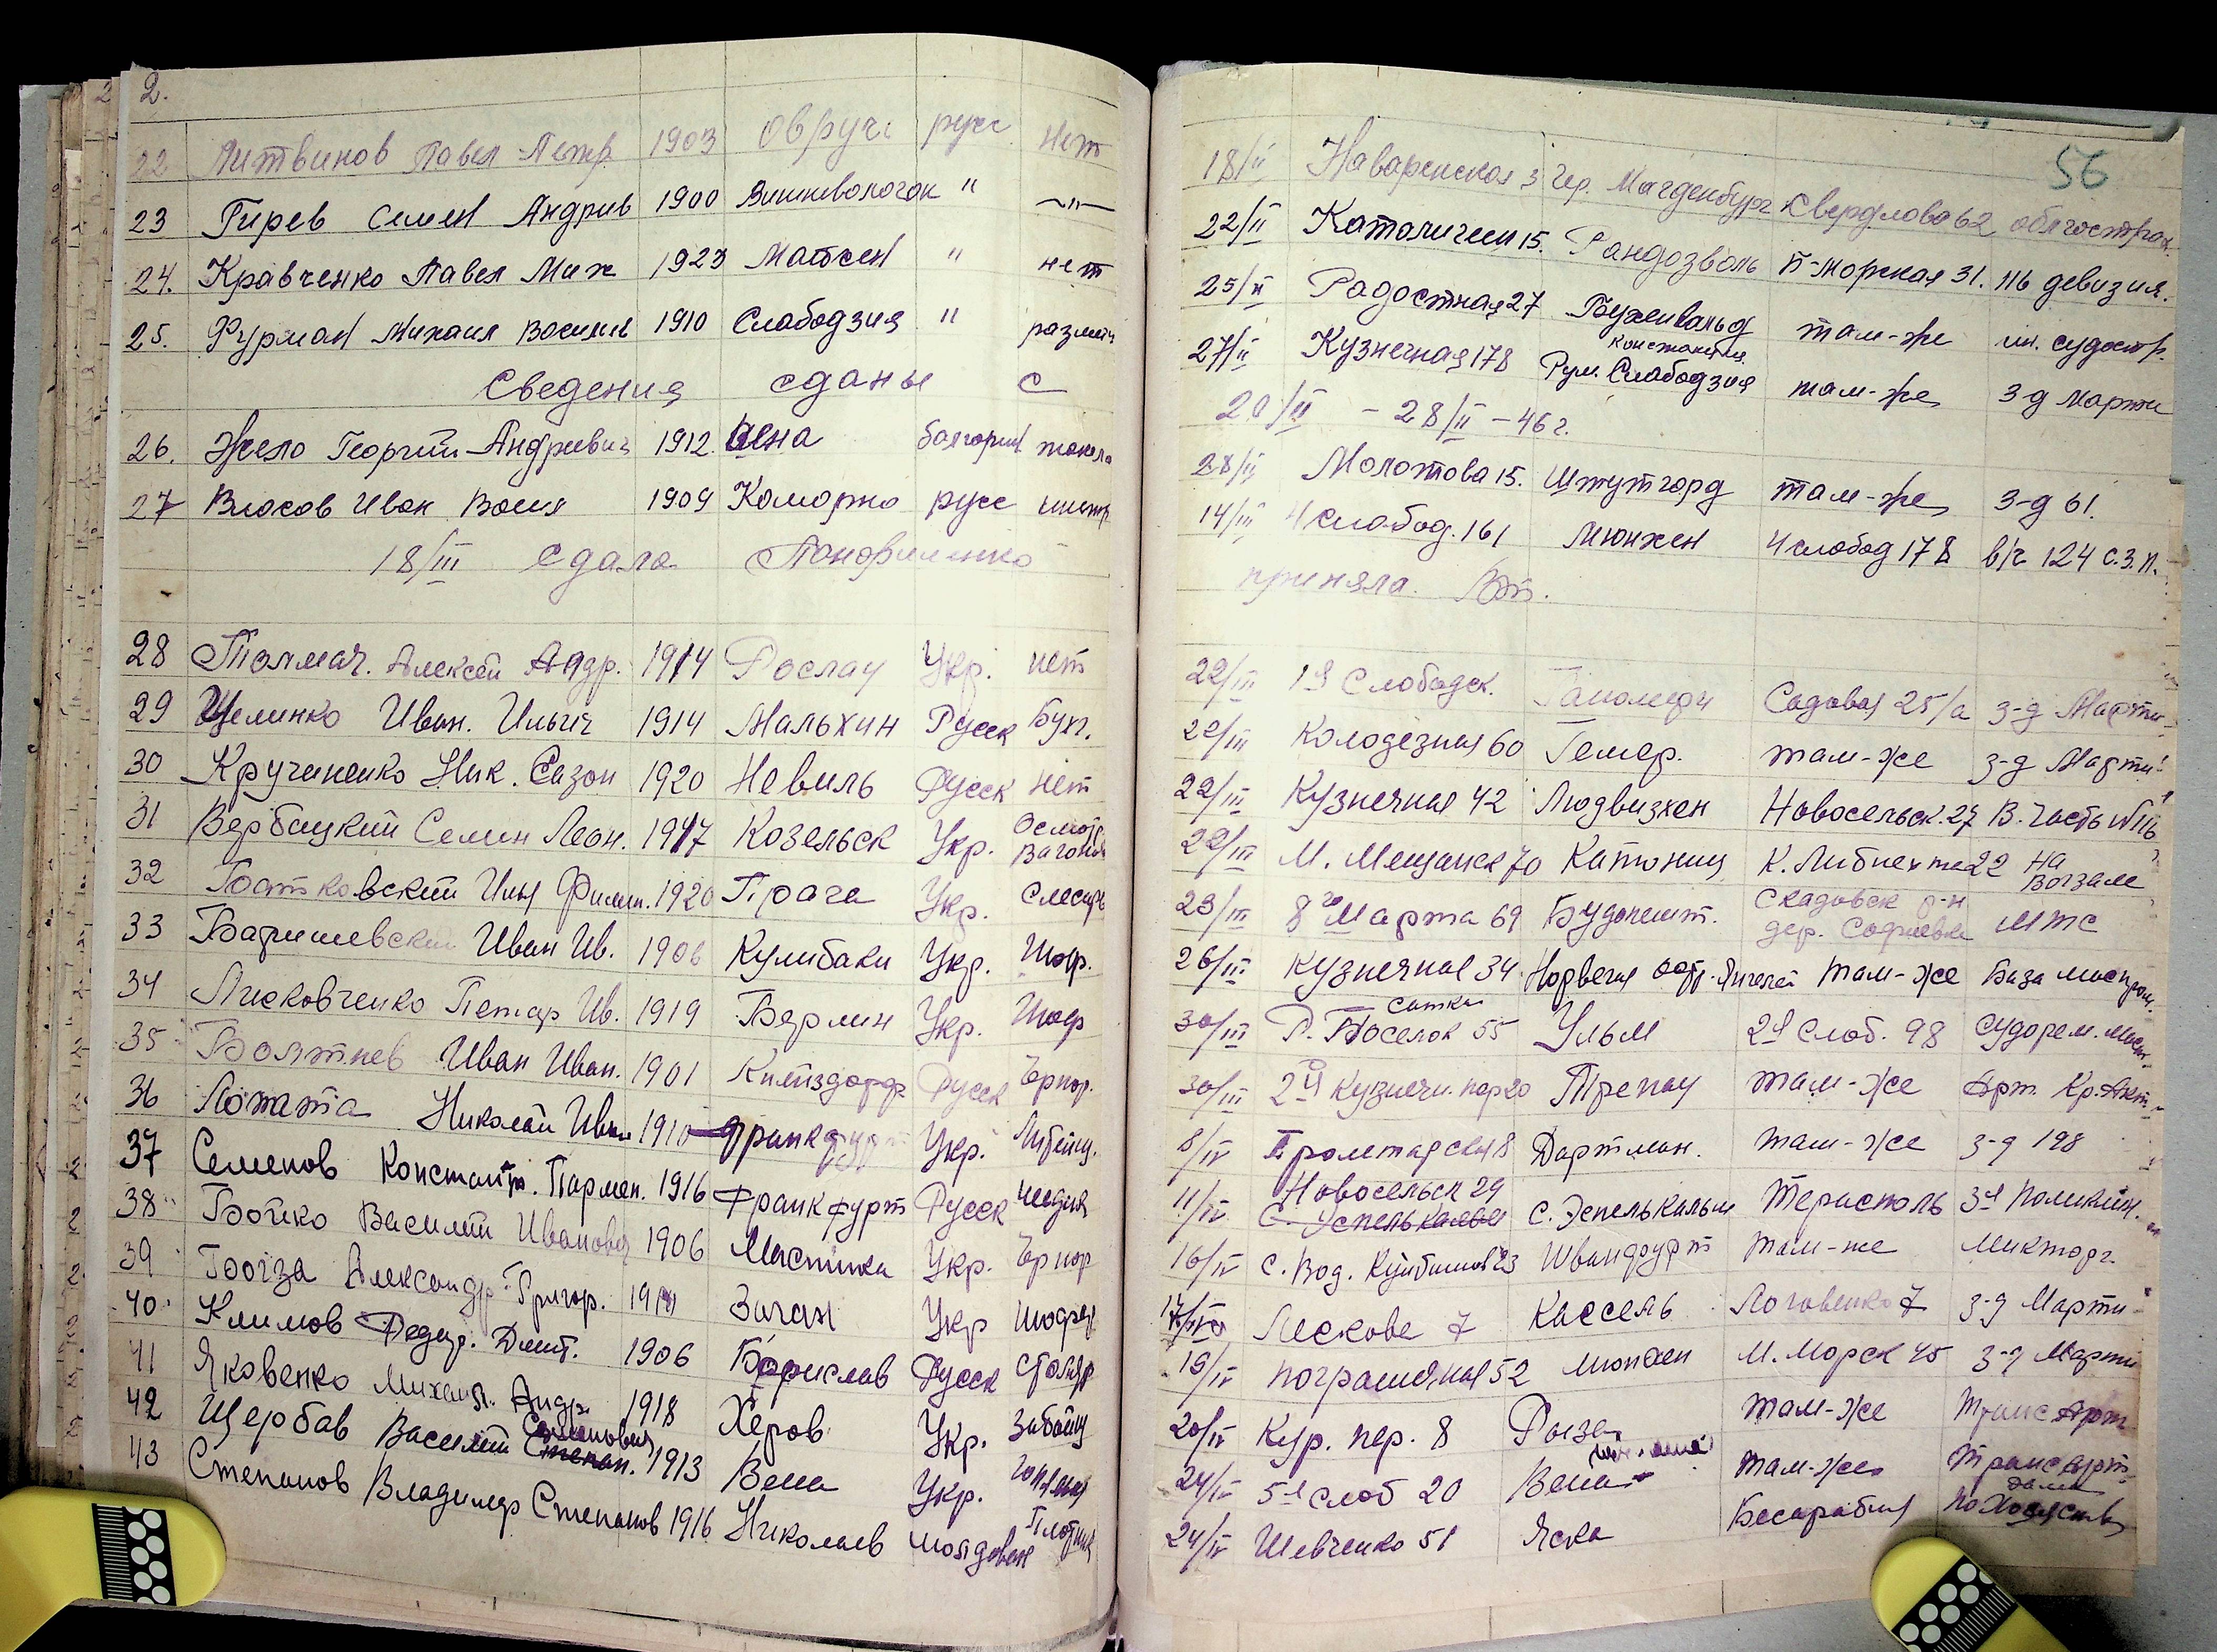 2.
22 Литвинов Павел Петр 1903 Овруч русс нет
23 Гирев Семен Андрив 1900 Вишневолочок " —"—
24. Кравченко Павел Мих 1923 Матсен " нет
25. Фурман Михаил Василь 1910 Слабодзия "
Сведения сданы с
26. Жело Георгий Андревич 1912. Иена болгорин
27 Власов Иван Васил 1909 Коморно русс
18/III сдала Панфиленко
28 Толмач. Алексей Андр. 1914 Рослау Укр. нет
29 Щелинко Иван. Ильич 1914 Мальхин Русск Бух.
30 Кручиненко Ник. Сазон 1920 Невиль Русск нет
31 Вербицкий Семен Леон. 1917 Козельск Укр. Осмотр Вагонов
32 Батковский Илья Филип. 1920 Прага Укр. Слесарь
33 Баришевский Иван Ив. 1906 Кулибаки Укр. Шоф.
34 Лисковченко Петр Ив. 1919 Берлин Укр. Шоф
35 Болтнев Иван Иван. 1901 Русск
36 Лопата Николай Иван 1910 Франкфурт Укр. Литейщ.
37 Семенов Констант. Пармен. 1916 Франкфурт Русск
38 Бойко Василий Иванович 1906 Укр.
39 Александр Григор. Заган Укр Шофер
40 Климов Федор. Дмит. 1906 Борислав Русск Столяр
41 Яковенко Михаил. Андр. 1918 Херов Укр. Забойщ
42 Щербав Василий Степан. Семенович 1913 Вена Укр.
43 Степанов Владимир Степанов 1916 Николаев молдован Плотник
56
18/II Наваренская 3 Гер. Магденбург Свердлова 62 облгосстрах.
22/II Католичесп 15. Рандозволь П-морская 31. 116 девизия.
25/II Радостная 27 Бухенвальд там-же им. судостр.
27/II Кузнечная 178 Рум. Слабодзия там-же з-д Марти
20/II - 28/II - 46 г.
28/II Молотова 15. Штутгорд там-же з-д 61.
14/III 4 слобод. 161 Мюнхен 4 слобод 178 в/ч 124 с.з.п.
приняла.
22/III 1я Слободск. Садовая 25/а з-д Марти
22/III Колодезная 60 Гемер. там-же з-д Марти
22/III Кузнечная 42 Людвизхен Новосельск. 27 В. Часть
22/III М. Мещанск 70 Катониц К. Либкнехта 22 на Вокзале
23/III 8го Марта 69 Будопешт. Скадовск р-н дер. Софиевка МТС
26/III Кузнечная 34 Норвегия там-же База
30/III Р. Поселок 55 Ульм 2я Слоб. 98 Судорем.
30/III 2й Кузнечн. пер 20 Трепау там-же Арт. Кр. Акт
8/IV Пролетарская 8 Дартман. там-же з-д 198
11/IV Новосельск 29 С. Эспелькальм Тересполь 3я Поликлин.
16/IV С. Вод. Куйбишов 23 Шванфурт там-же Микторг.
17/IV Лескова 7 Кассель Логовенко 7 з-д Марти
19/IV Пограничная 52 Мюнхен М. Морск 45 з-д Марти
20/IV Кур. пер. 8 там-же Транс Арт
24/IV 5я слоб 20 Вена там-же Транспорт
24/IV Шевченко 51 Яска Бесарабия